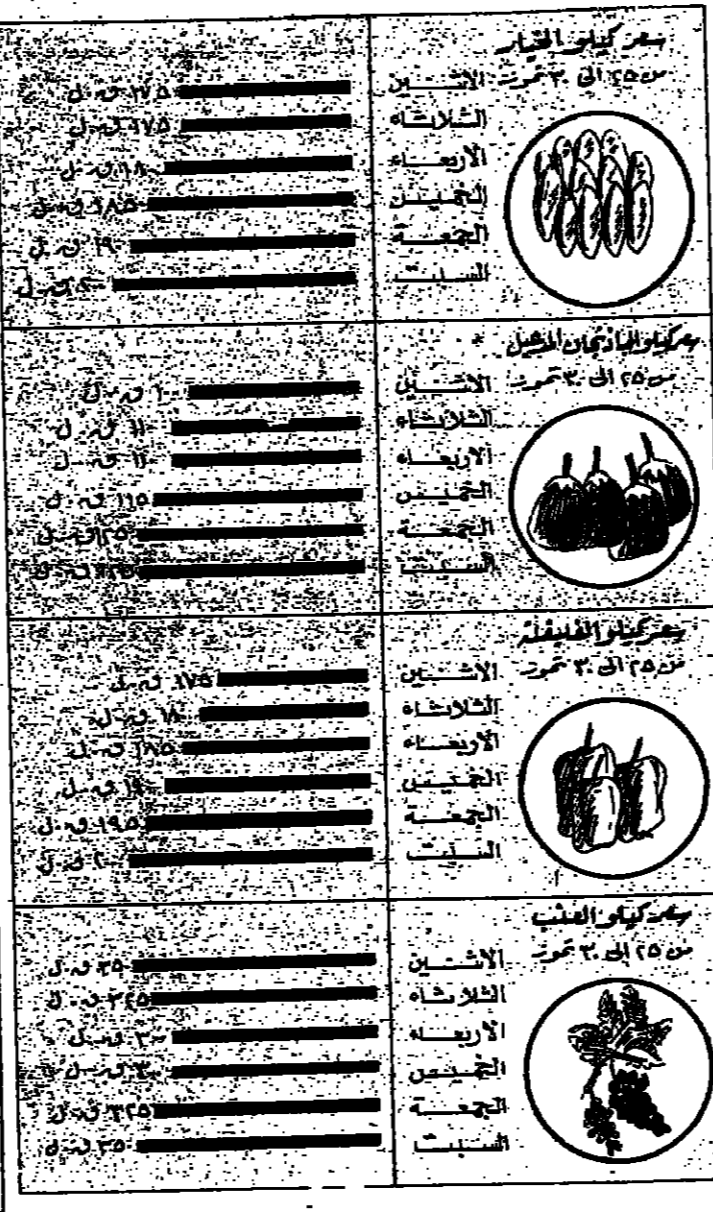 سعر كيلو الخيار
من ٢٥ الى ٣٠ تموز
الاثنين ١٧٥ ق.ل
الثلاثاء ١٧٥ ق.ل
الاربعاء ١٨٠ ق.ل
الخميس ١٨٥ ق.ل
الجمعة ١٩٠ ق.ل
السبت ٢٠٠ ق.ل
سعر كيلو الباذنجان المدعبل
من ٢٥ الى ٣٠ تموز
الاثنين ١٠٠ ق.ل
الثلاثاء ١١٠ ق.ل
الاربعاء ١١٠ ق.ل
الخميس ١١٥ ق.ل
الجمعة ١٢٥ ق.ل
السبت ١٢٥ ق.ل
سعر كيلو الفليفلة
من ٢٥ الى ٣٠ تموز
الاثنين ١٧٥ ق.ل
الثلاثاء ١٨٠ ق.ل
الاربعاء ١٨٥ ق.ل
الخميس ١٩٠ ق.ل
الجمعة ١٩٥ ق.ل
السبت ٢٠٠ ق.ل
سعر كيلو العنب
من ٢٥ الى ٣٠ تموز
الاثنين ٣٥٠ ق.ل
الثلاثاء ٣٢٥ ق.ل
الاربعاء ٣٠٠ ق.ل
الخميس ٣٠٠ ق.ل
الجمعة ٣٢٥ ق.ل
السبت ٣٥٠ ق.ل